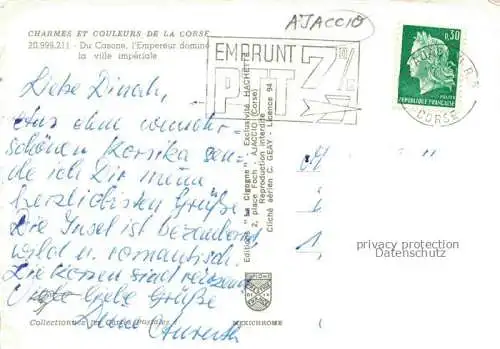 CHARMES ET COULEURS DE LA CORSE
20.999.211 - Du Casone, l'Empereur domine
la ville impériale
AJACCIO
EMPRUNT
PTT 7%
0,30
REPUBLIQUE FRANÇAISE
CORSE
Liebe Dinah,
Aus dem wunder-
schönen Korsika sen-
de ich Dir meine
herzlichsten Grüße
Die Insel ist bezaubernd
wild u. romantisch.
Die Korsen sind reizend
Viele liebe Grüße
Deine
Editions "La Cigogne" - Exclusivité HACHETTE
2, place Foch - AJACCIO (Corse)
Reproduction interdite
Cliché aérien C. GEAY - Licence 94
privacy protection
Datenschutz
Collectionnez les Cartes Postales !
MEXICHROME